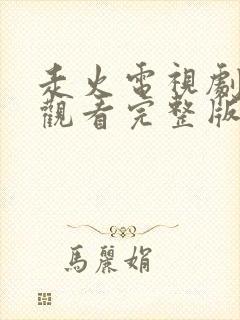 火電視劇
觀看完整版
馬麗娟